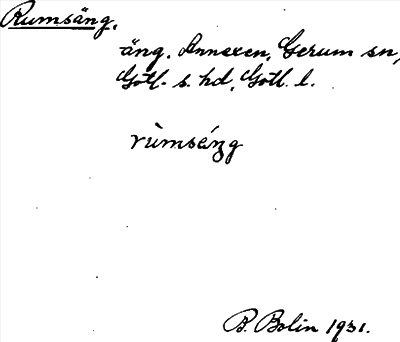 Rumsäng.
äng. Annexen, Gerum sn,
Gotl. s. hd, Gotl. l.
rùmséŋg
B. Bolin 1931.